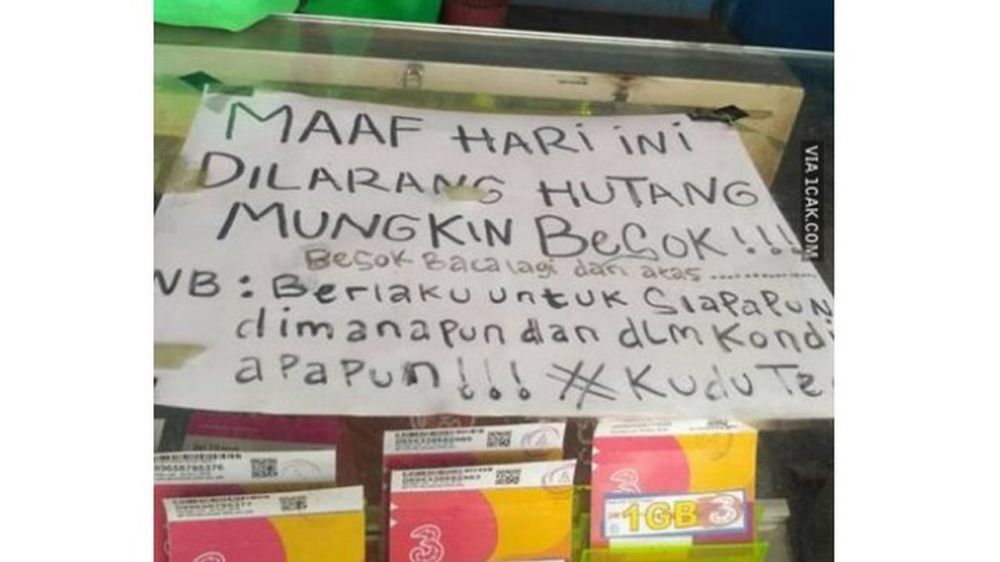 MAAF HARI INI
DILARANG HUTANG
MUNGKIN BESOK!!!
Besok Baca lagi dari atas ..............
NB: Berlaku untuk Siapapun
dimanapun dan dlm Kondi
apapun!!! #KuduTe
VIA 1CAK.COM
3
3
1GB 3